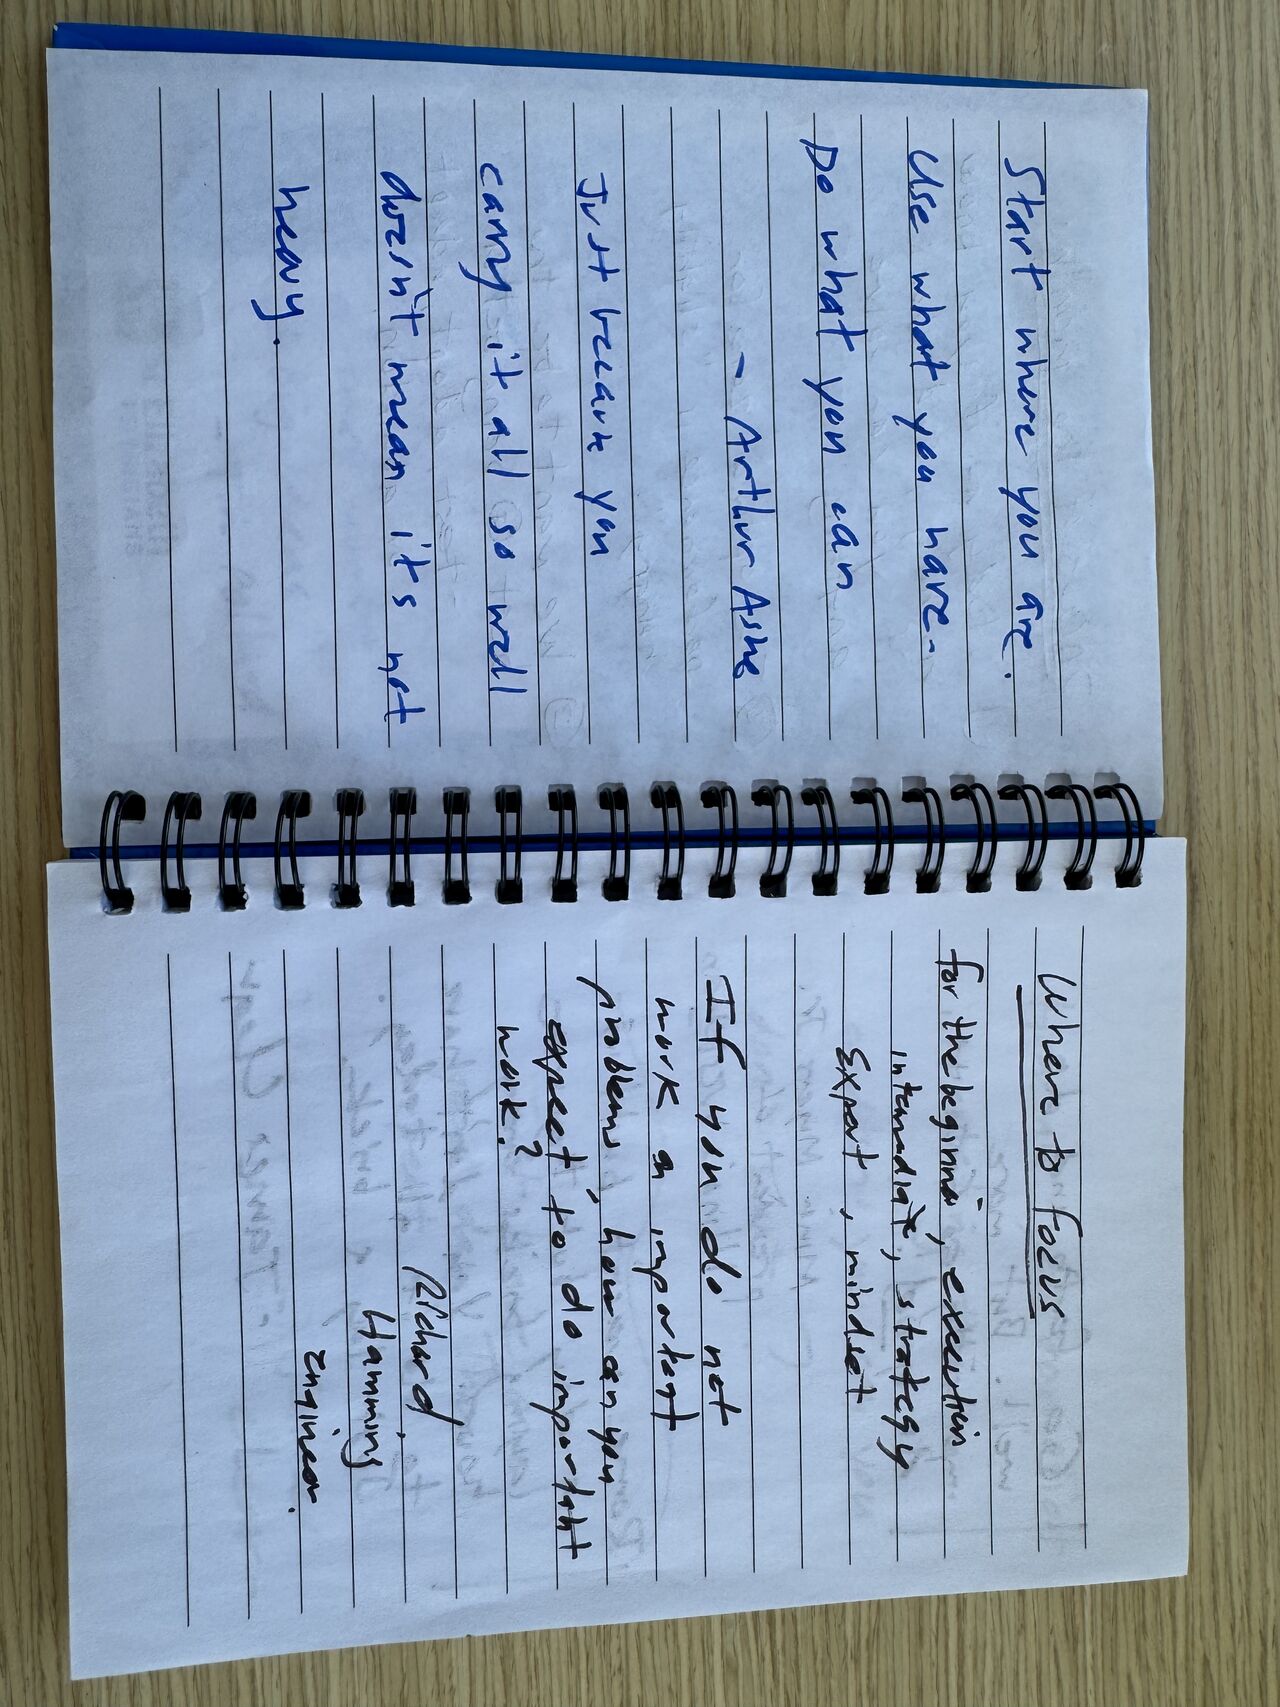 Start where you are.
Use what you have.
Do what you can
- Arthur Ashe
Just because you
carry it all so well
doesn't mean it's not
heavy.
Where to focus
for the beginner, execution
intermediate, strategy
Expert, mindset
If you do not
work on important
problems, how can you
expect to do important
work?
Richard
Hamming
Engineer.